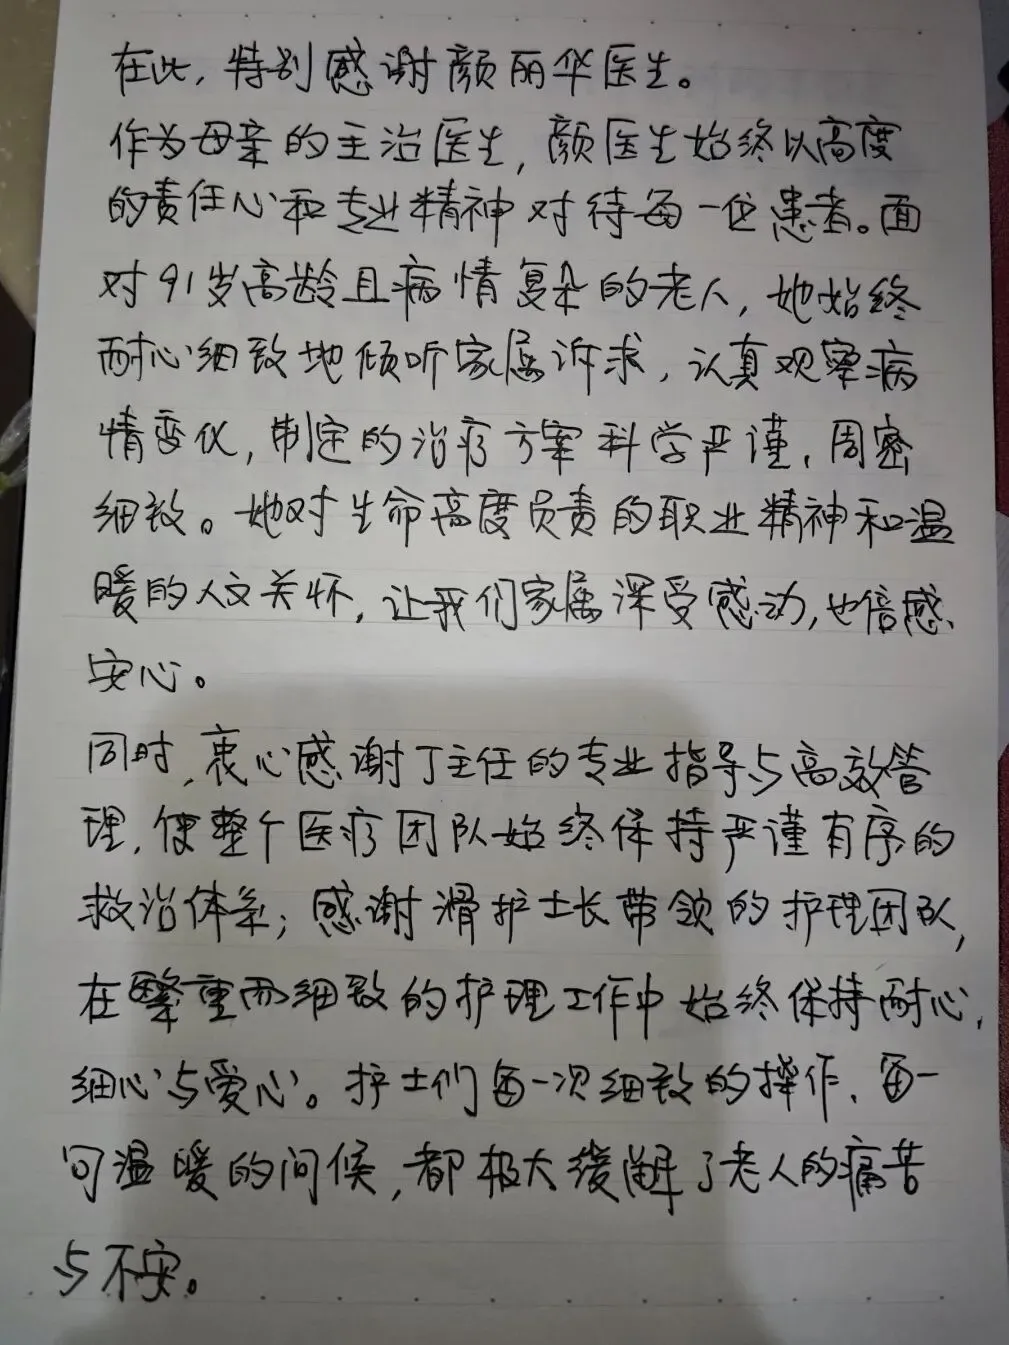 在此,特别感谢颜丽华医生。
作为母亲的主治医生,颜医生始终以高度
的责任心和专业精神对待每一位患者。面
对91岁高龄且病情复杂的老人,她始终
耐心细致地倾听家属诉求,认真观察病
情变化,制定的治疗方案科学严谨、周密
细致。她对生命高度负责的职业精神和温
暖的人文关怀,让我们家属深受感动,也倍感
安心。
同时,衷心感谢丁主任的专业指导与高效管
理,使整个医疗团队始终保持严谨有序的
救治体系;感谢滑护士长带领的护理团队,
在繁重而细致的护理工作中始终保持耐心、
细心与爱心。护士们每一次细致的操作、每一
句温暖的问候,都极大缓解了老人的痛苦
与不安。